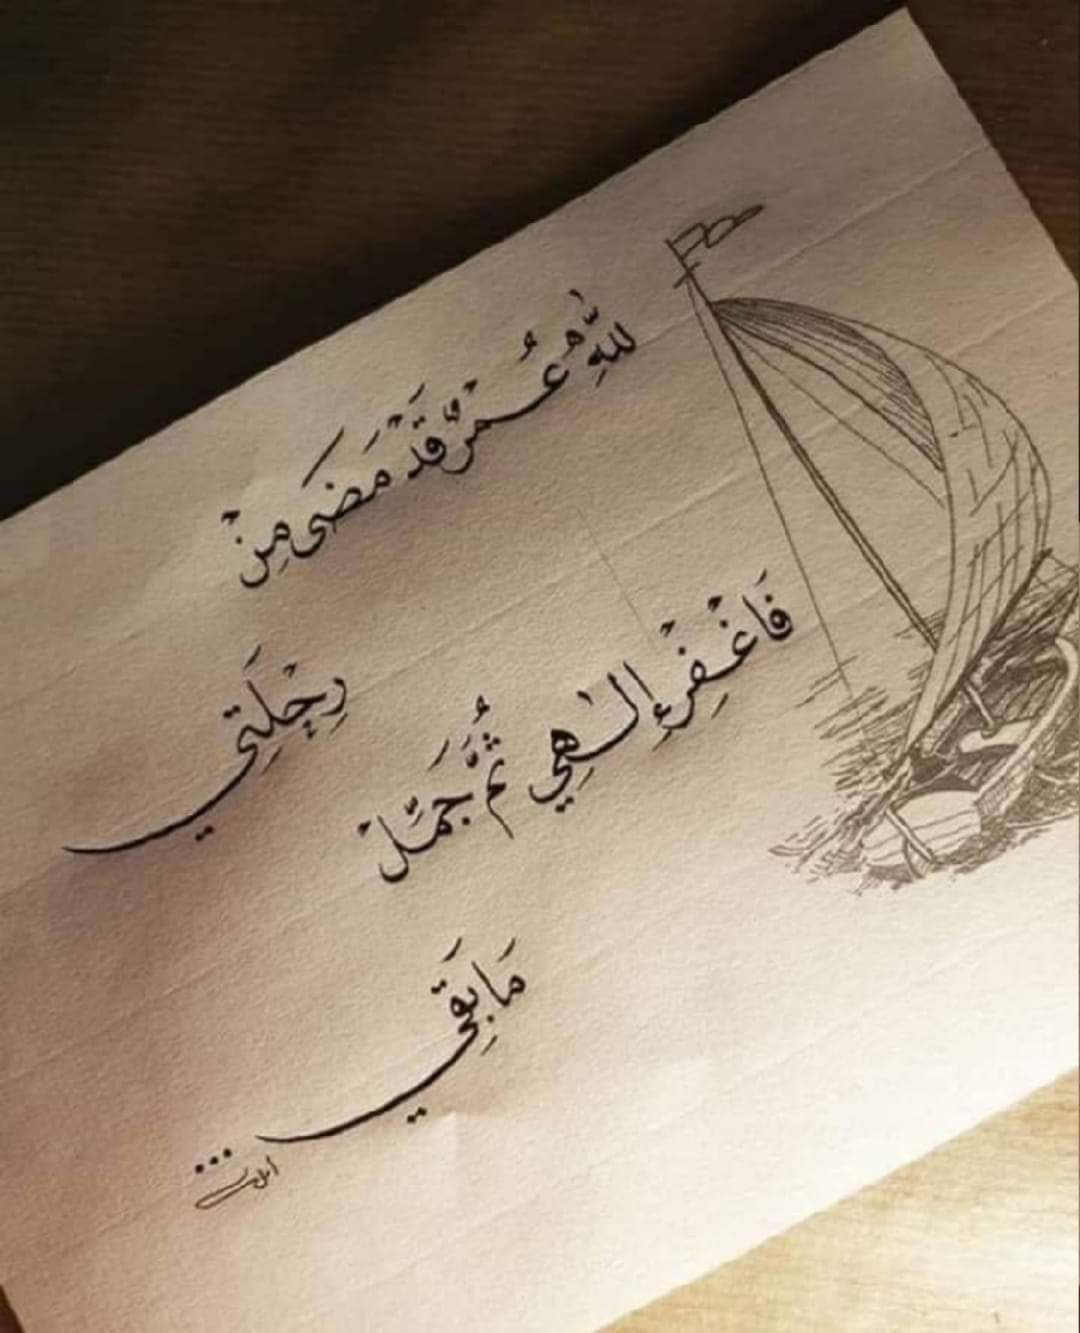 لِلّٰهِ عُمْرٌ قَدْ مَضَى مِنْ
رِحْلَتِي
فَاغْفِرْ إِلٰهِي ثُمَّ جَمِّلْ
مَا بَقِي...